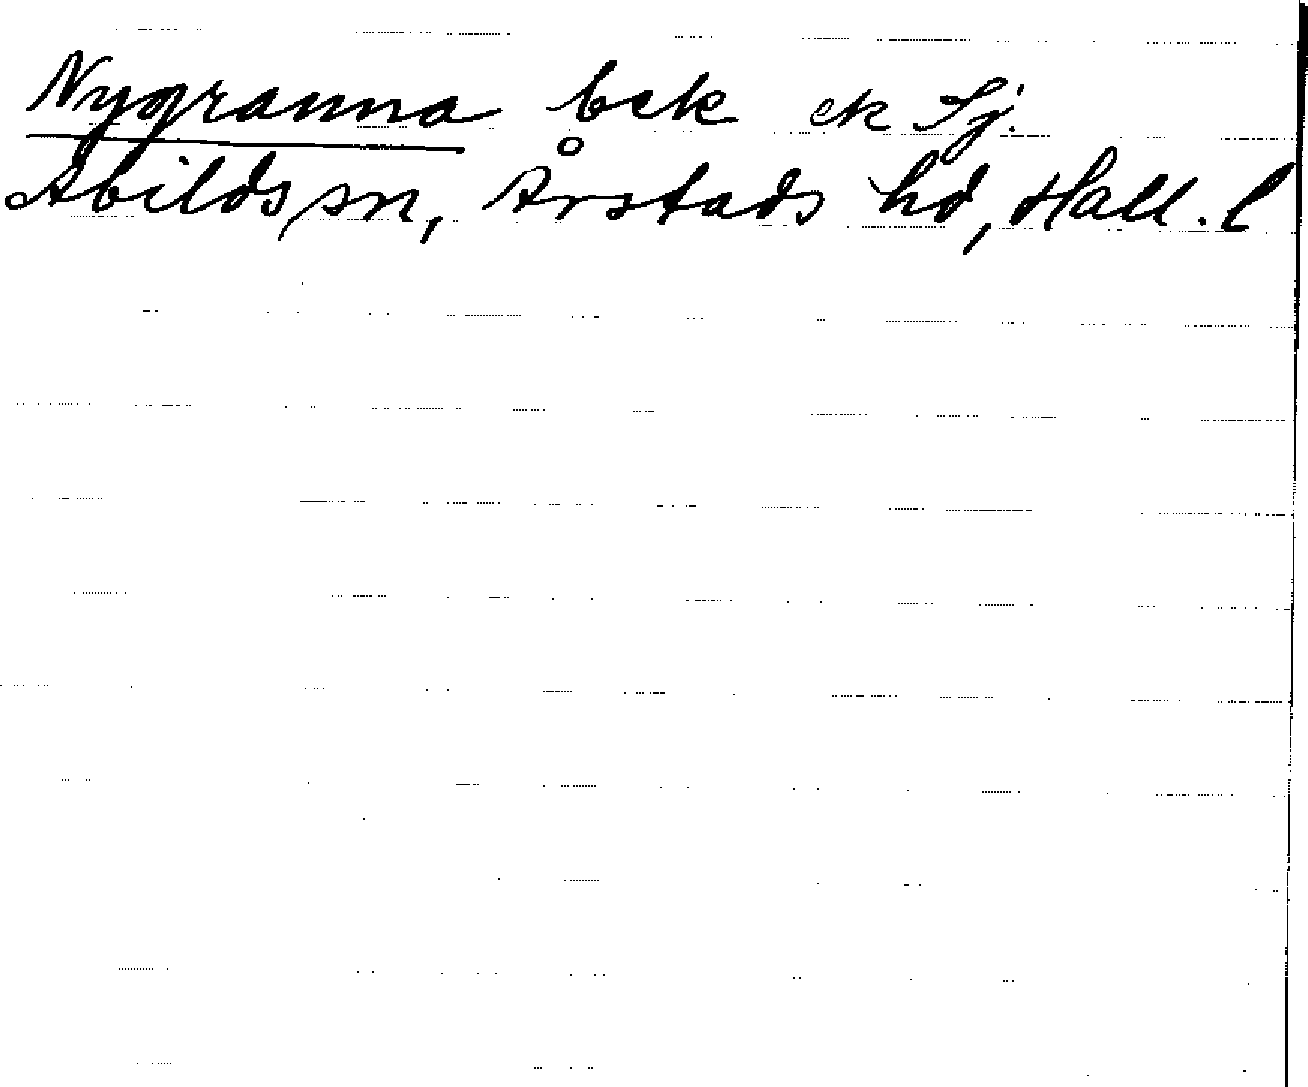 Nygranna bek ek Sj.
Abilds sn, Årstads hd, Hall. l